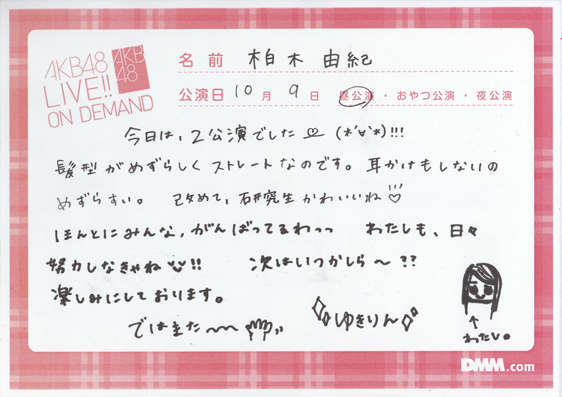 AKB48
LIVE!!
ON DEMAND
AKB
48
名前 柏木 由紀
公演日 10月 9日 昼公演・おやつ公演・夜公演
今日は、2公演でした (*'∀'*)!!!
髪型がめずらしくストレートなのです。耳かけもしないの
めずらすい。 改めて、研究生かわいいね♡
ほんとにみんな、がんばってるわっっ わたしも、日々
努力しなきゃね!! 次はいつかしら〜??
楽しみにしております。
ではまた〜〜
ゆきりん
↑
わたし。
DMM.com